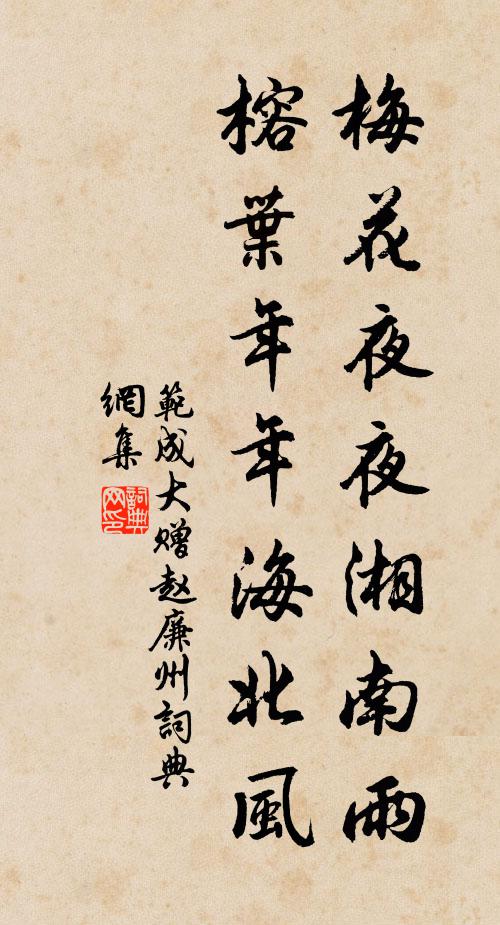 梅花夜夜湘南雨
榕葉年年海北風
範成大赠赵廉州詞典
網集
詞典网印